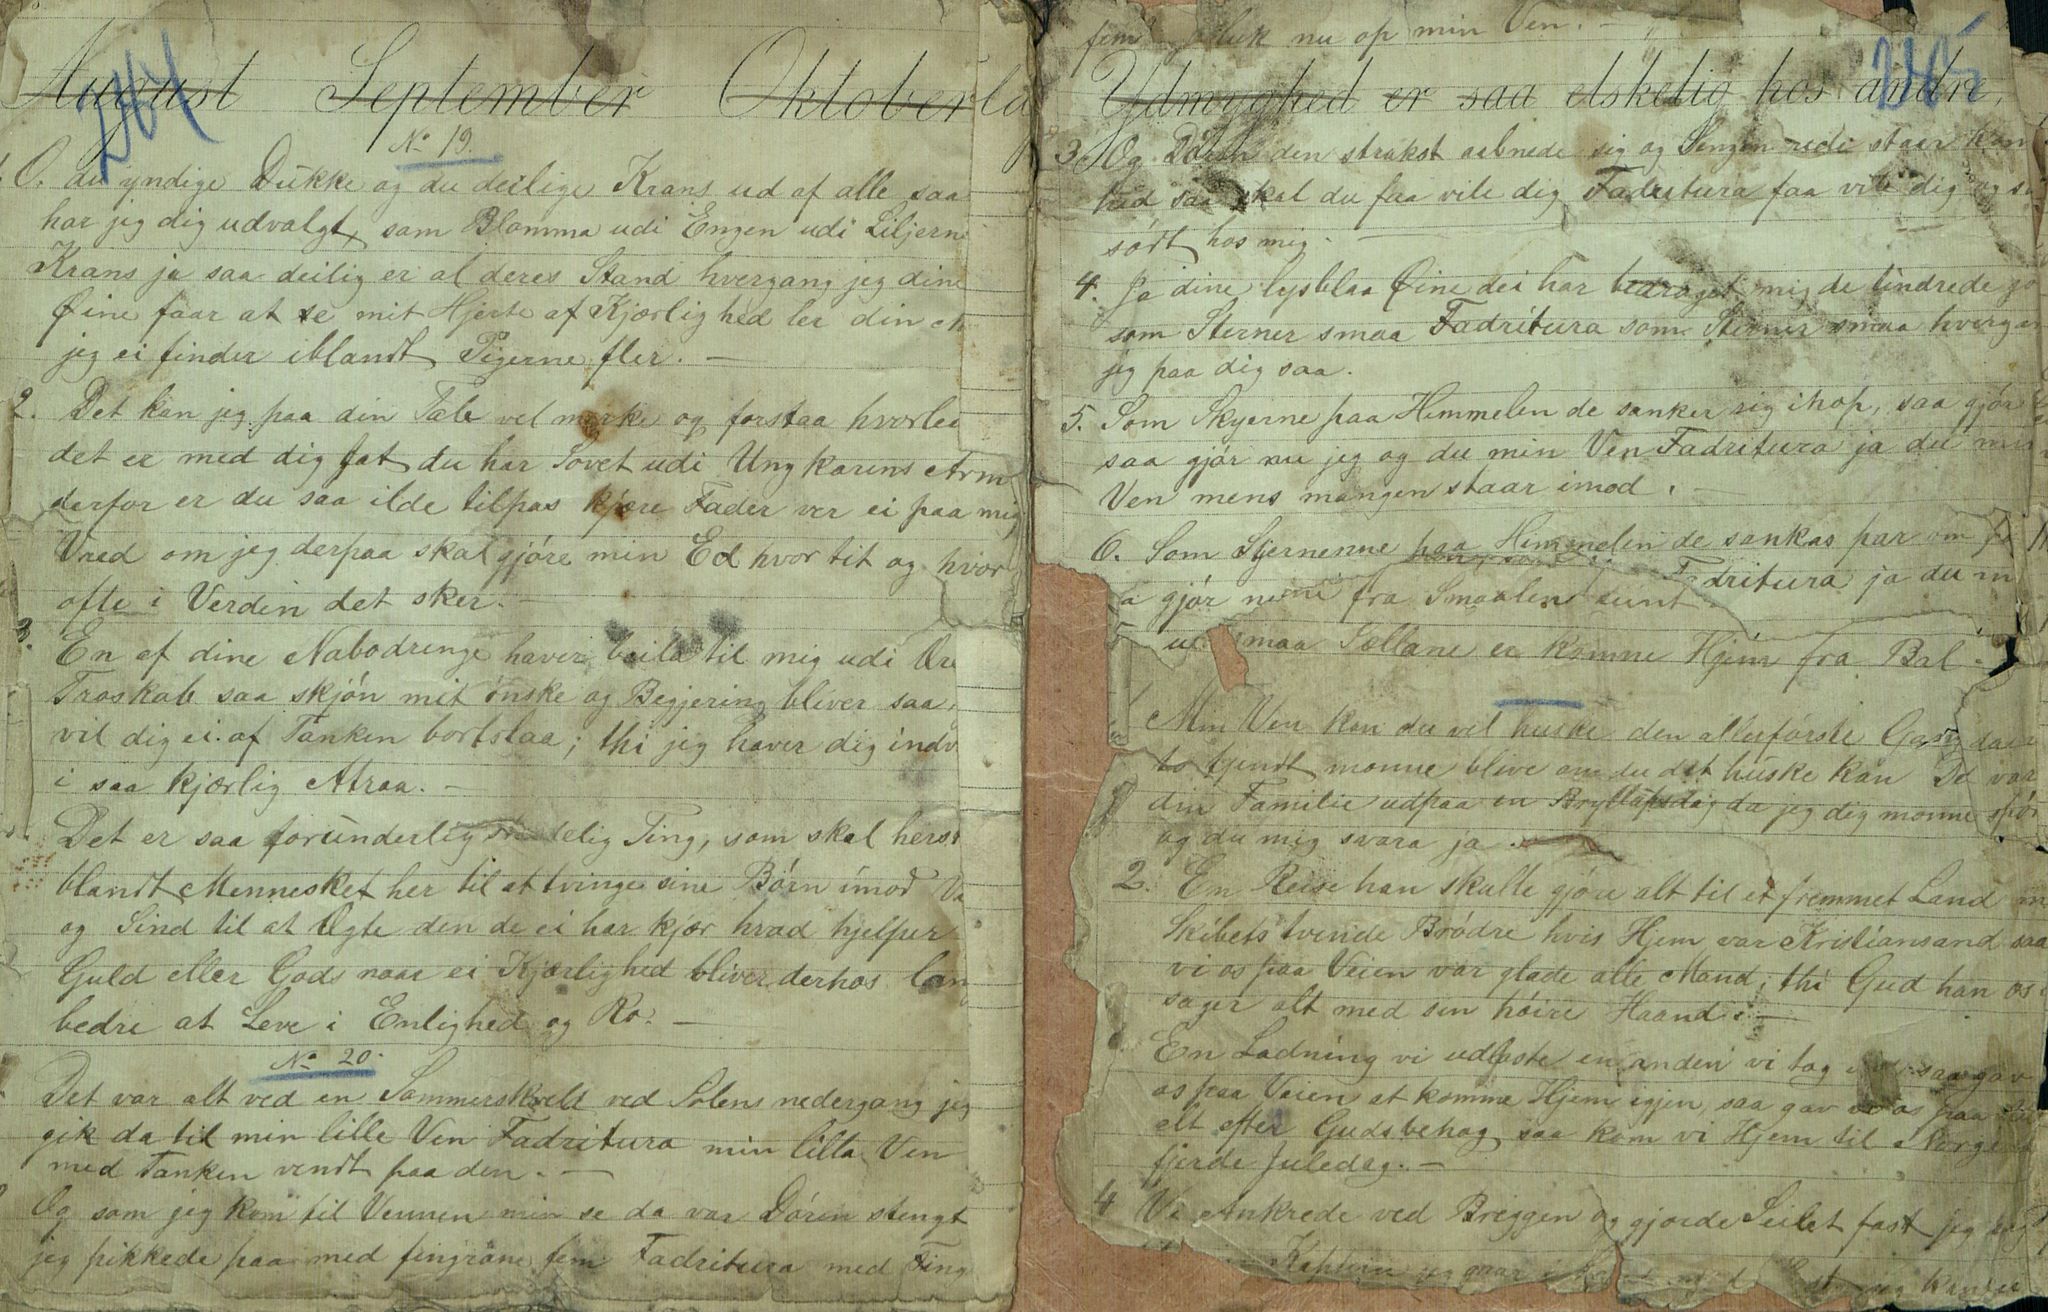 264
August September Oktober
No 19.
O. du yndige Dukke og du deilige Krans ud af alle saa
har jeg dig udvalgt, som Blomma udi Engen udi Liljern
Krans ja saa deilig er al deres Stand hvergang jeg dine
Øine faar at se mit Hjerte af Kjærlighed ler din
jeg ei finder iblandt Pigerne fler. —
2. Det kan jeg paa din Tale vel mærke og forstaa hvorlei
det er med dig fat du har Sovet udi Ungkarens Arm
derfor er du saa ilde tilpas kjære Fader ver ei paa mig
Vred om jeg derpaa skal gjöre min Ed hvor tit og hvor
ofte i Verden det sker. —
3. En af dine Nabodrenge haver beila til mig udi
Troskab saa skjön mit önske og Begjering bliver saa
vil dig ei af Tanken bortslaa; thi jeg haver dig indv
i saa kjærlig Atraa. —
Det er saa forunderlig en Ting, som skal hers
blandt Mennesket her til at tvinge sine Börn imod
og Sind til at Ægte den de ei har kjær hvad hjelper
Guld eller Gods naar ei Kjærlighed bliver derhos lan
bedre at Leve i Enlighed og Ro. —
No 20.
Det var alt ved en Sommerskveld ved Solens nedergang jeg
gik da til min lille Ven Fadritura min lilla Ven
med Tanken vendt paa den. —
Og som jeg kom til Vennen min se da var Dören stengt
jeg pikkede paa med fingrane fem Fadritura med Fing
fem luk nu op min Ven. —
265
Ydmyghed er saa elskelig hos andre,
3. Og Dören den strakst aabnede sig og Sengen udi staar
saa skal du faa vile dig Fadritura faa vile dig og s
södt hos mig. —
4. Ja dine lysblaa Øine dei har bedraget mig de tindrede jo
som Sterner smaa Fadritura som Sterner smaa hvergan
jeg paa dig saa.
5. Som Skyerne paa Himmelen de sanker sig ihop, saa gjör
saa gjör nu jeg og du min Ven Fadritura ja du min
Ven mens mangen staar imod. —
6. Som Stjernenne paa Himmelen de sankas par om
gjör fra Smaalen Fadritura ja du m
smaa er komne Hjem fra Bal. —
Min Ven kan du vel huske den allerförste Gang da
to kjendt monne blive om du det huske kan De var
din Familie udpaa en Bryllupsdag da jeg dig monne spör
og du mig svara ja.
2. En Reise han skulle gjöre alt til et fremmet Land m
Skibets tvende Brödre hvis Hjem var Kristiansand saa
vi os paa Veien var glade alle Mand; thi Gud han os
sager alt med sin höire Haand. —
En Ladning vi udloste en anden vi tog saa gav
os paa Veien at komme Hjem igjen, saa gav vi os paa
alt efter Guds behag saa kom vi Hjem til Norge
fjerde Juledag. —
4 Vi Ankrede ved Breggen og gjorde Seilet fast jeg
Kaptein jeg